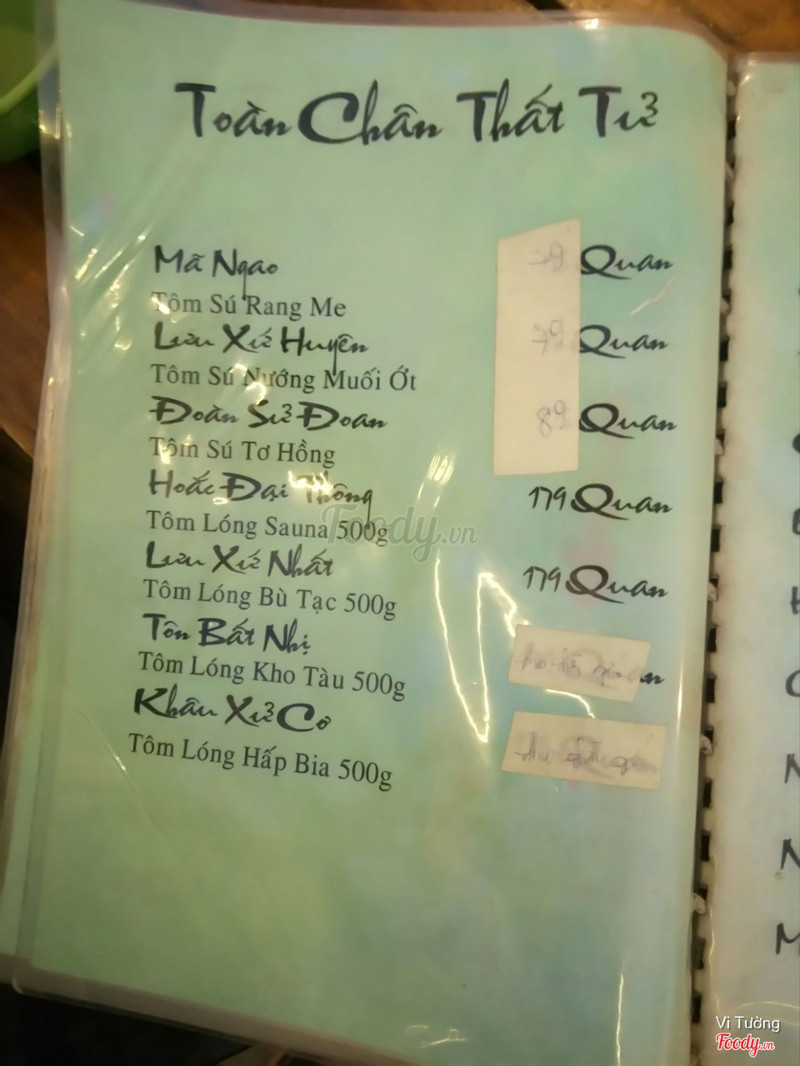 Toàn Chân Thất Tử
Mã Ngao Quan
Tôm Sú Rang Me
Lưu Xứ Huyên Quan
Tôm Sú Nướng Muối Ớt
Đoàn Sử Đoan 89 Quan
Tôm Sú Tơ Hồng
Hoắc Đại Thông 179 Quan
Tôm Lóng Sauna 500g
Lưu Xứ Nhất 179 Quan
Tôm Lóng Bù Tạc 500g
Tôn Bất Nhị
Tôm Lóng Kho Tàu 500g
Khâu Xử Cơ
Tôm Lóng Hấp Bia 500g
Foody.vn
Vi Tường
Foody.vn